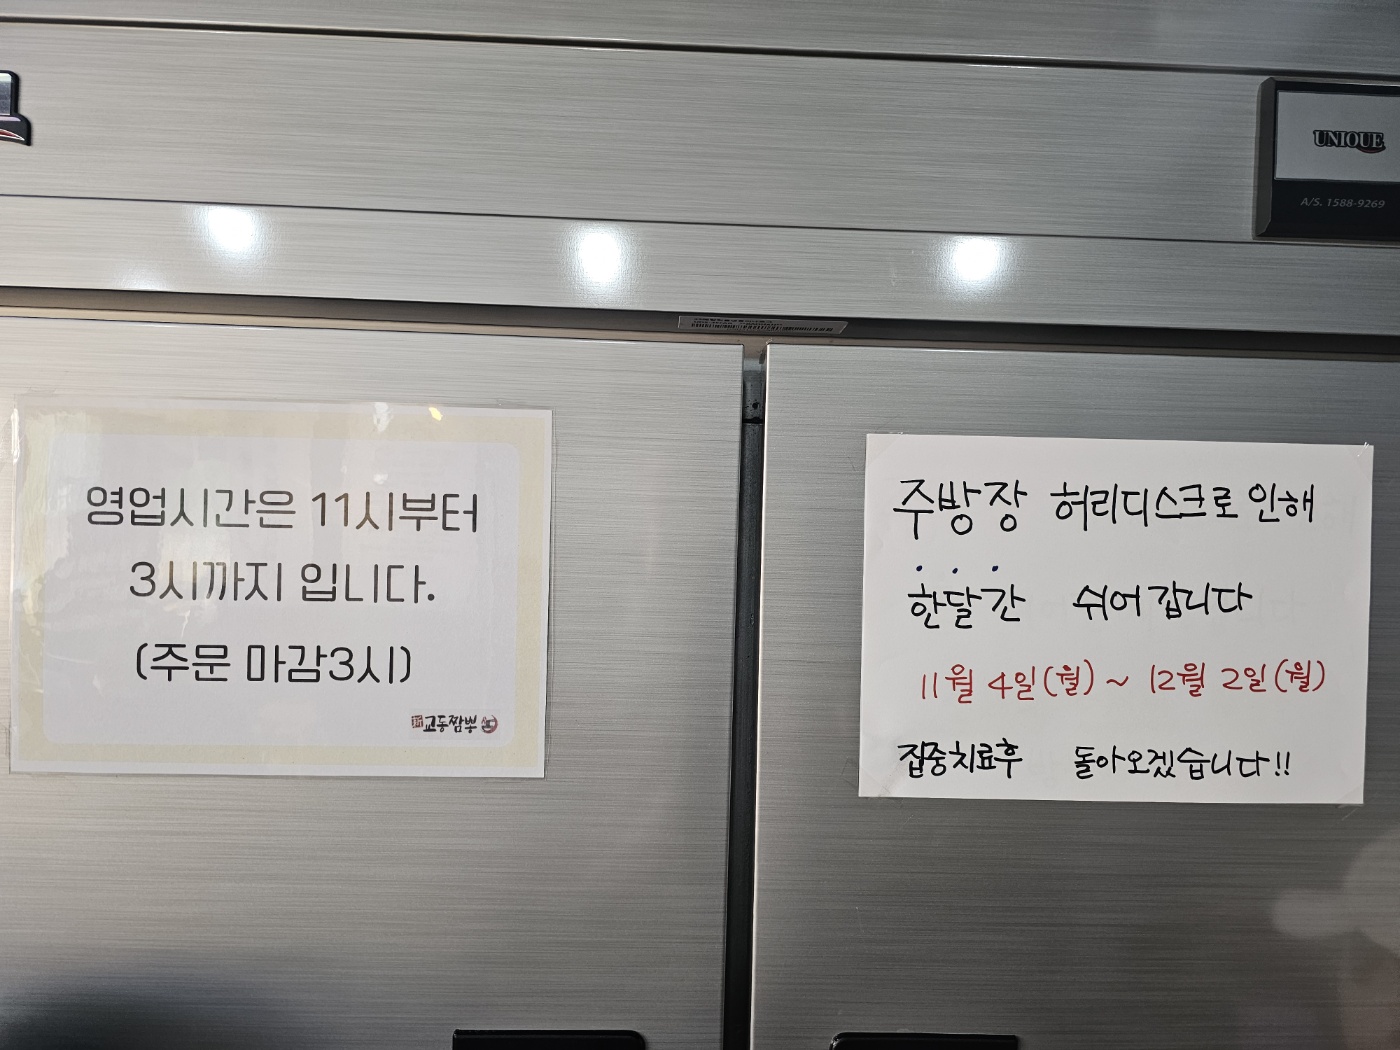 UNIQUE
A/S. 1588-9269
영업시간은 11시부터
3시까지 입니다.
(주문 마감3시)
新교동짬뽕
주방장 허리디스크로 인해
한달간 쉬어갑니다
11월 4일(월) ~ 12월 2일(월)
집중치료후 돌아오겠습니다!!